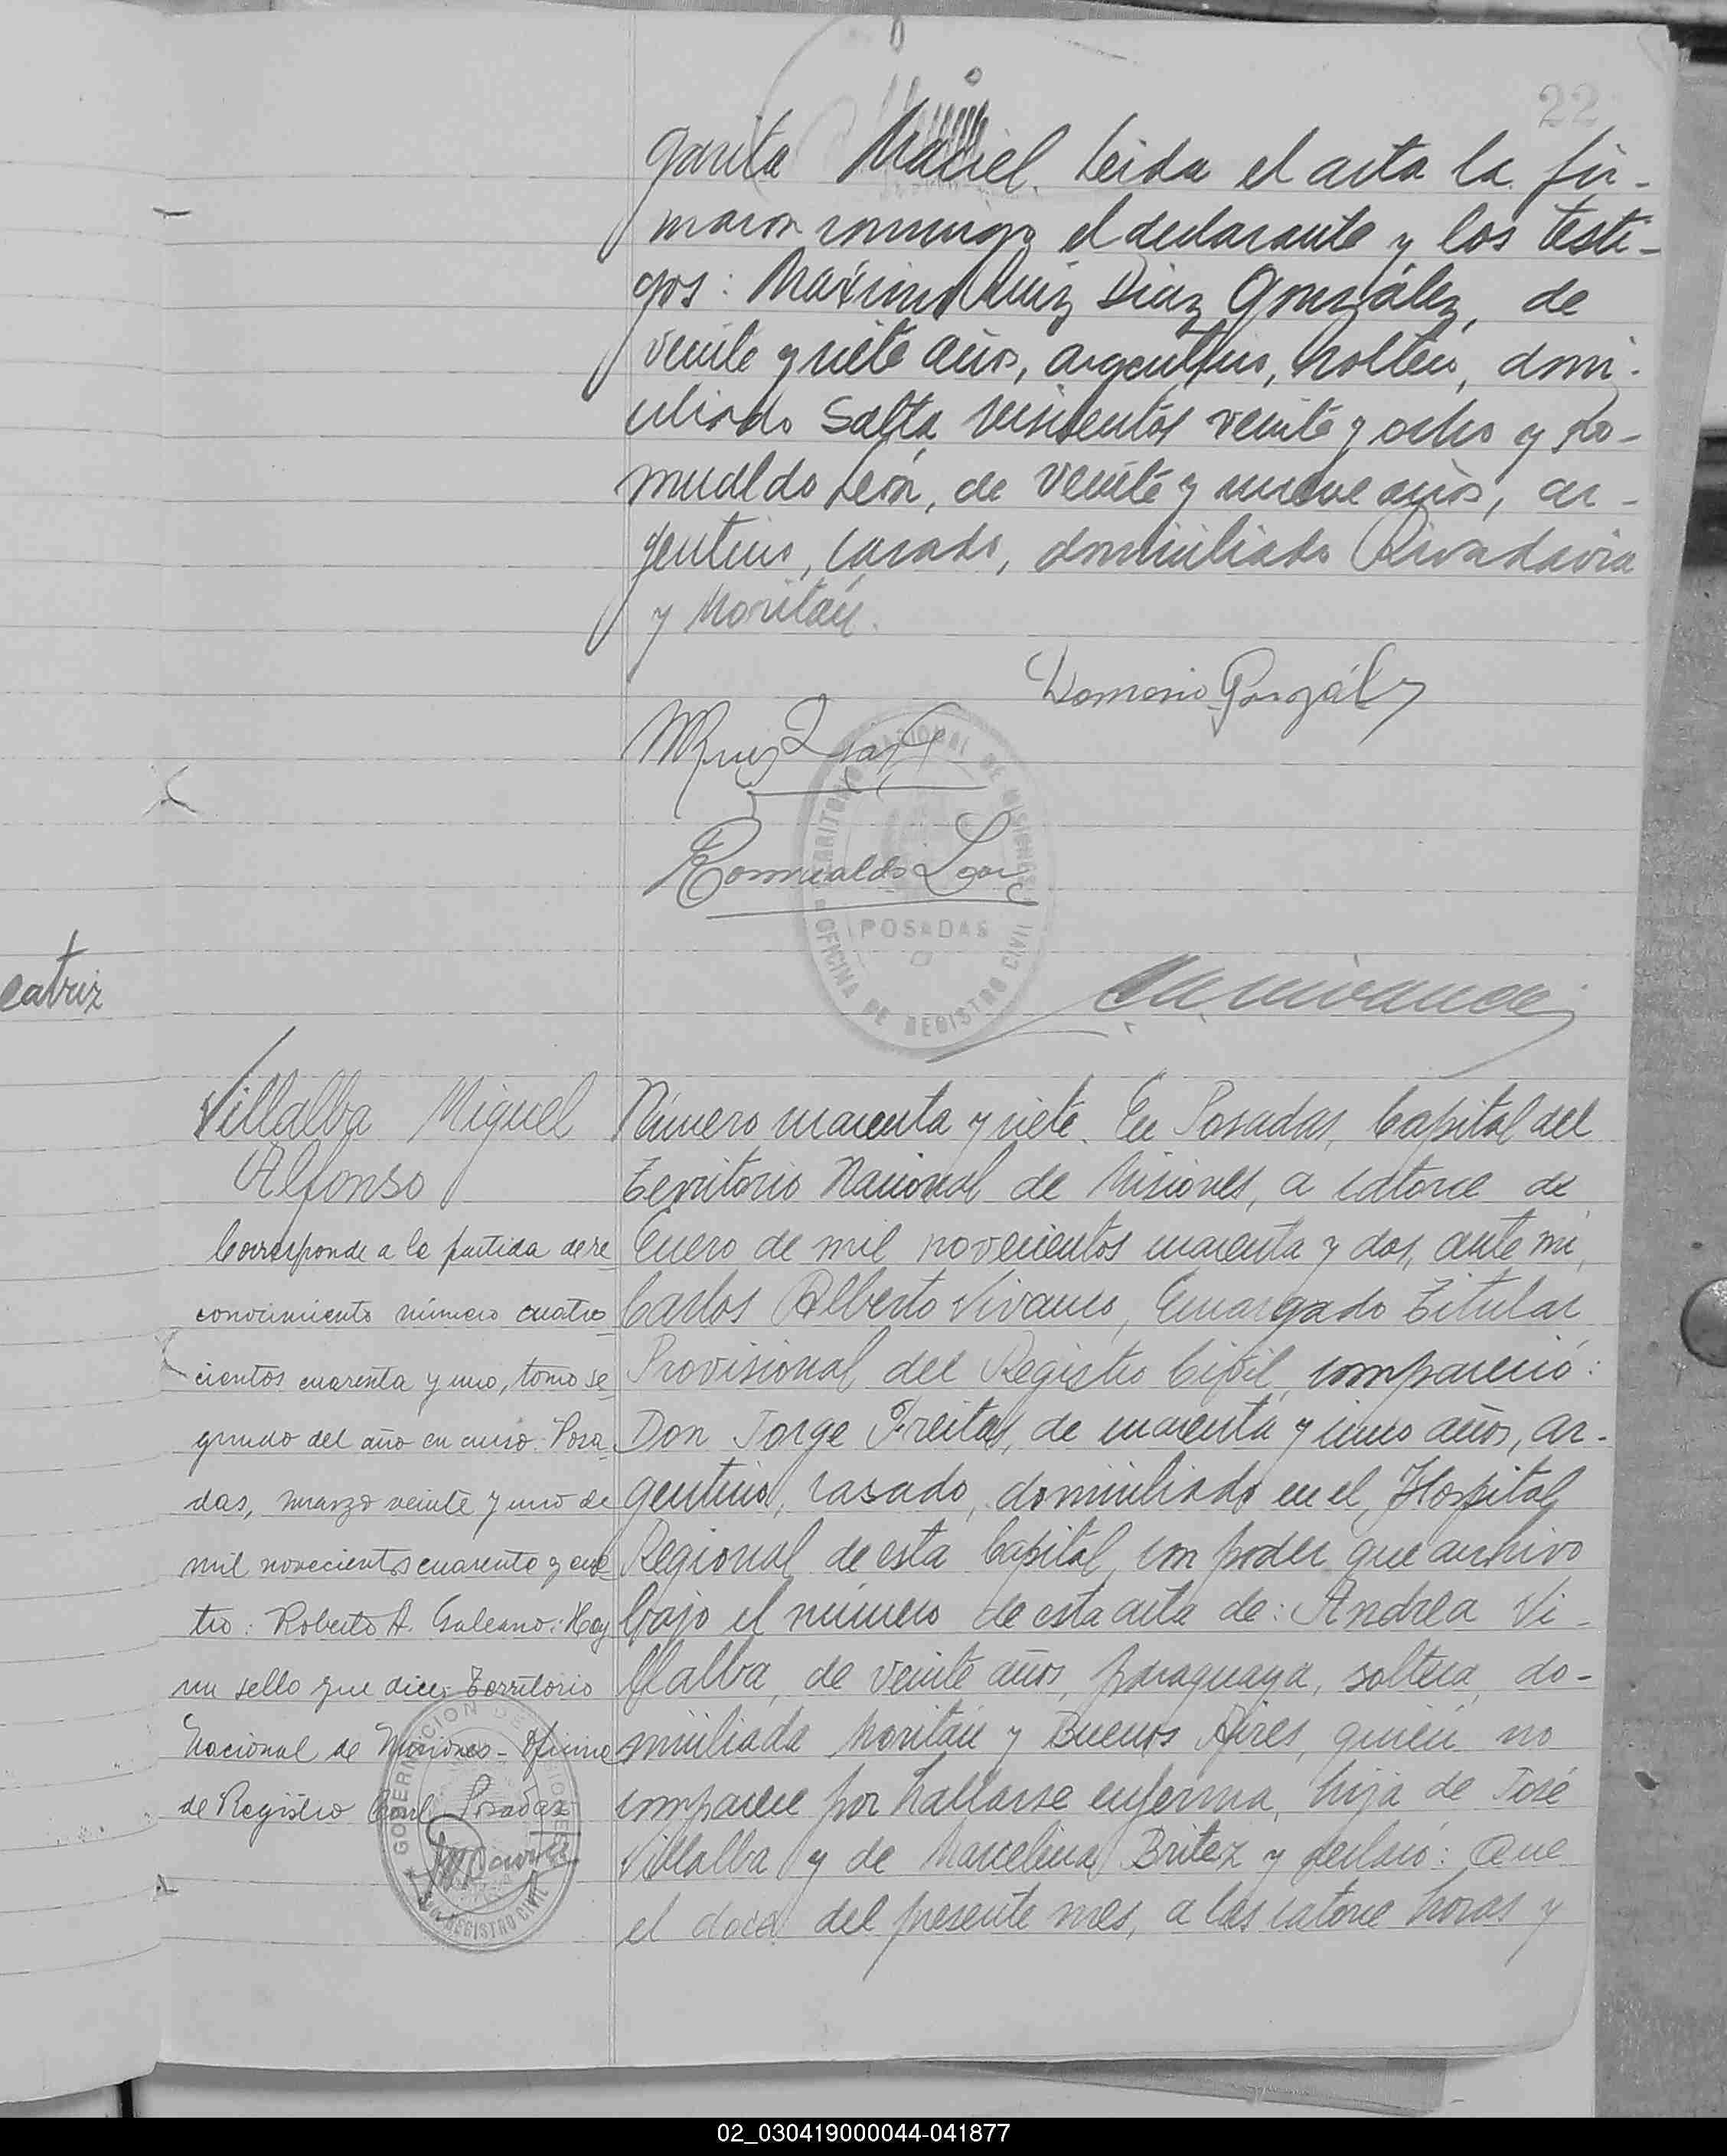 22
garita Maciel. Leida el acta la fir-
maron conmigo el declarante y los testi-
gos: Máximo Ruiz Diaz González, de
veinte y siete años, argentino, soltero, domi-
ciliado Salta, trescientos veinte y ocho y Ro-
mualdo León, de veinte y nueve años, ar-
gentino, casado, domiciliado Rivadavia
y Moritán.
González
M Ruiz Diaz G
Romualdo Leon
TERRITORIO NACIONAL DE MISIONES
POSADAS
OFICINA DE REGISTRO CIVIL
eatriz
Villalba Miguel
Alfonso
Corresponde a la partida de re
conocimiento número cuatro
cientos cuarenta y uno, tomo se
gundo del año en curso. Posa
das, marzo veinte y uno de
mil novecientos cuarenta y cua
tro: Roberto A. Galeano: Hay
un sello que dice: Territorio
Nacional de Misiones - Oficina
de Registro Civil Posadas
GOBERNACION DE MISIONES
REGISTRO CIVIL
Número cuarenta y siete. En Posadas, Capital del
Territorio Nacional de Misiones, a catorce de
Enero de mil novecientos cuarenta y dos, ante mi,
Carlos Alberto Vivanco, Encargado Titular
Provisional del Registro Civil, compareció:
Don Jorge Freitas, de cuarenta y cinco años, ar-
gentino, casado, domiciliado en el Hospital
Regional de esta Capital, con poder que archivo
bajo el número de esta acta de: Andrea Vi-
llalba, de veinte años, paraguaya, soltera, do-
miciliada Moritán y Buenos Aires, quién no
comparece por hallarse enferma, hija de José
Villalba y de Marcelina Britez y declaró: Que
el doce del presente mes, a las catorce horas y
02_030419000044-041877